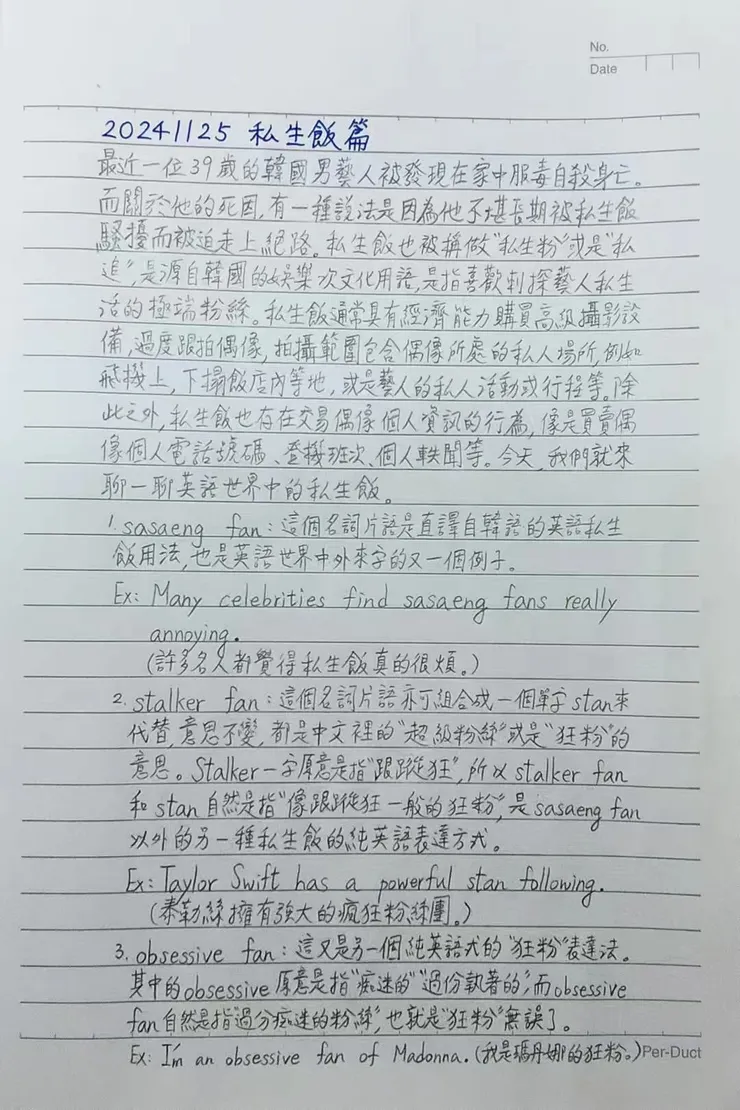 No.
Date
20241125 私生飯篇
最近一位39歲的韓國男藝人被發現在家中服毒自殺身亡。
而關於他的死因,有一種說法是因為他不堪長期被私生飯
騷擾而被迫走上絕路。私生飯也被稱做"私生粉"或是"私
追",是源自韓國的娛樂次文化用語,是指喜歡刺探藝人私生
活的極端粉絲。私生飯通常具有經濟能力購買高級攝影設
備,過度跟拍偶像,拍攝範圍包含偶像所處的私人場所,例如
飛機上,下榻飯店內等地,或是藝人的私人活動或行程等。除
此之外,私生飯也存在交易偶像個人資訊的行為,像是買賣偶
像個人電話號碼、登機班次、個人軼聞等。今天,我們就來
聊一聊英語世界中的私生飯。
1. sasaeng fan:這個名詞片語是直譯自韓語的英語私生
飯用法,也是英語世界中外來字的又一個例子。
Ex: Many celebrities find sasaeng fans really
annoying.
(許多名人都覺得私生飯真的很煩。)
2. stalker fan:這個名詞片語亦可組合成一個單字stan來
代替,意思不變,都是中文裡的"超級粉絲"或是"狂粉"的
意思。Stalker一字原意是指"跟蹤狂",所以stalker fan
和stan自然是指"像跟蹤狂一般的狂粉",是sasaeng fan
以外的另一種私生飯的純英語表達方式。
Ex: Taylor Swift has a powerful stan following.
(泰勒絲擁有強大的瘋狂粉絲團。)
3. obsessive fan:這又是另一個純英語式的"狂粉"表達法。
其中的obsessive原意是指"痴迷的""過份執著的",而obsessive
fan自然是指"過分痴迷的粉絲",也就是"狂粉"無誤了。
Ex: I'm an obsessive fan of Madonna.(我是瑪丹娜的狂粉。)Per-Duct